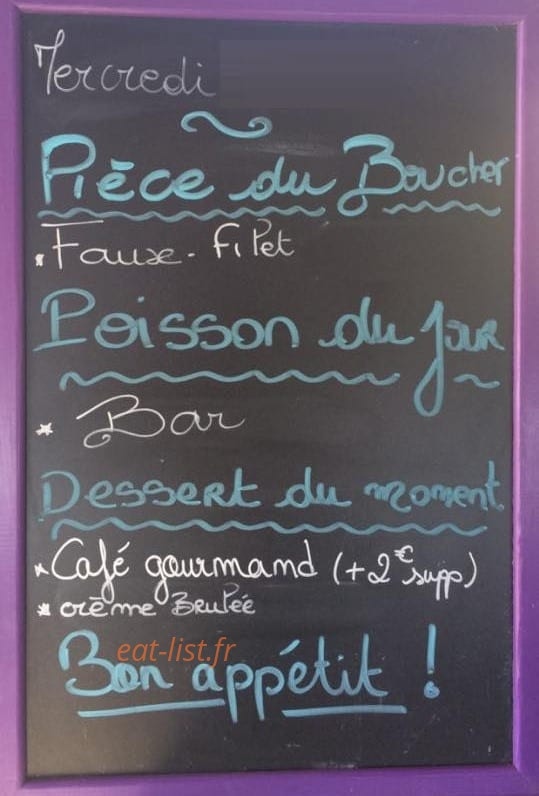 Mercredi
Pièce du Boucher
. Faux-filet
Poisson du jour
* Bar
Dessert du moment
* Café gourmand (+2€ supp)
* crème Brulée
eat-list.fr
Bon appétit !